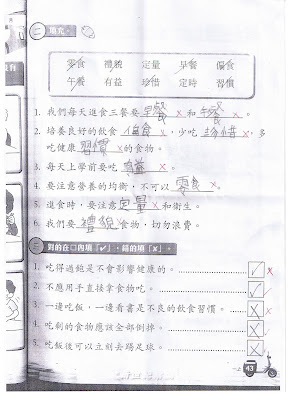 二 填充。
零食 禮貌 定量 早餐 偏食
午餐 有益 珍惜 定時 習慣
1. 我們每天進食三餐要早餐x和午餐x。
2. 培養良好的飲食偏食x,少吃珍惜x,多
吃健康習慣x的食物。
3. 每天上學前要吃有益x。
4. 要注意營養的均衡,不可以零食x。
5. 進食時,要注意定量x和衞生。
6. 我們要禮貌x食物,切勿浪費。
三 對的在□內填「✓」,錯的填「✗」。
1. 吃得過飽是不會影響健康的。 ✓ x
2. 不應用手直接拿食物吃。 ✓
3. 一邊吃飯,一邊看書是不良的飲食習慣。 ✗ x
4. 吃剩的食物應該全部倒掉。 ✓ x
5. 吃飯後可以立刻去踢足球。 ✗
43